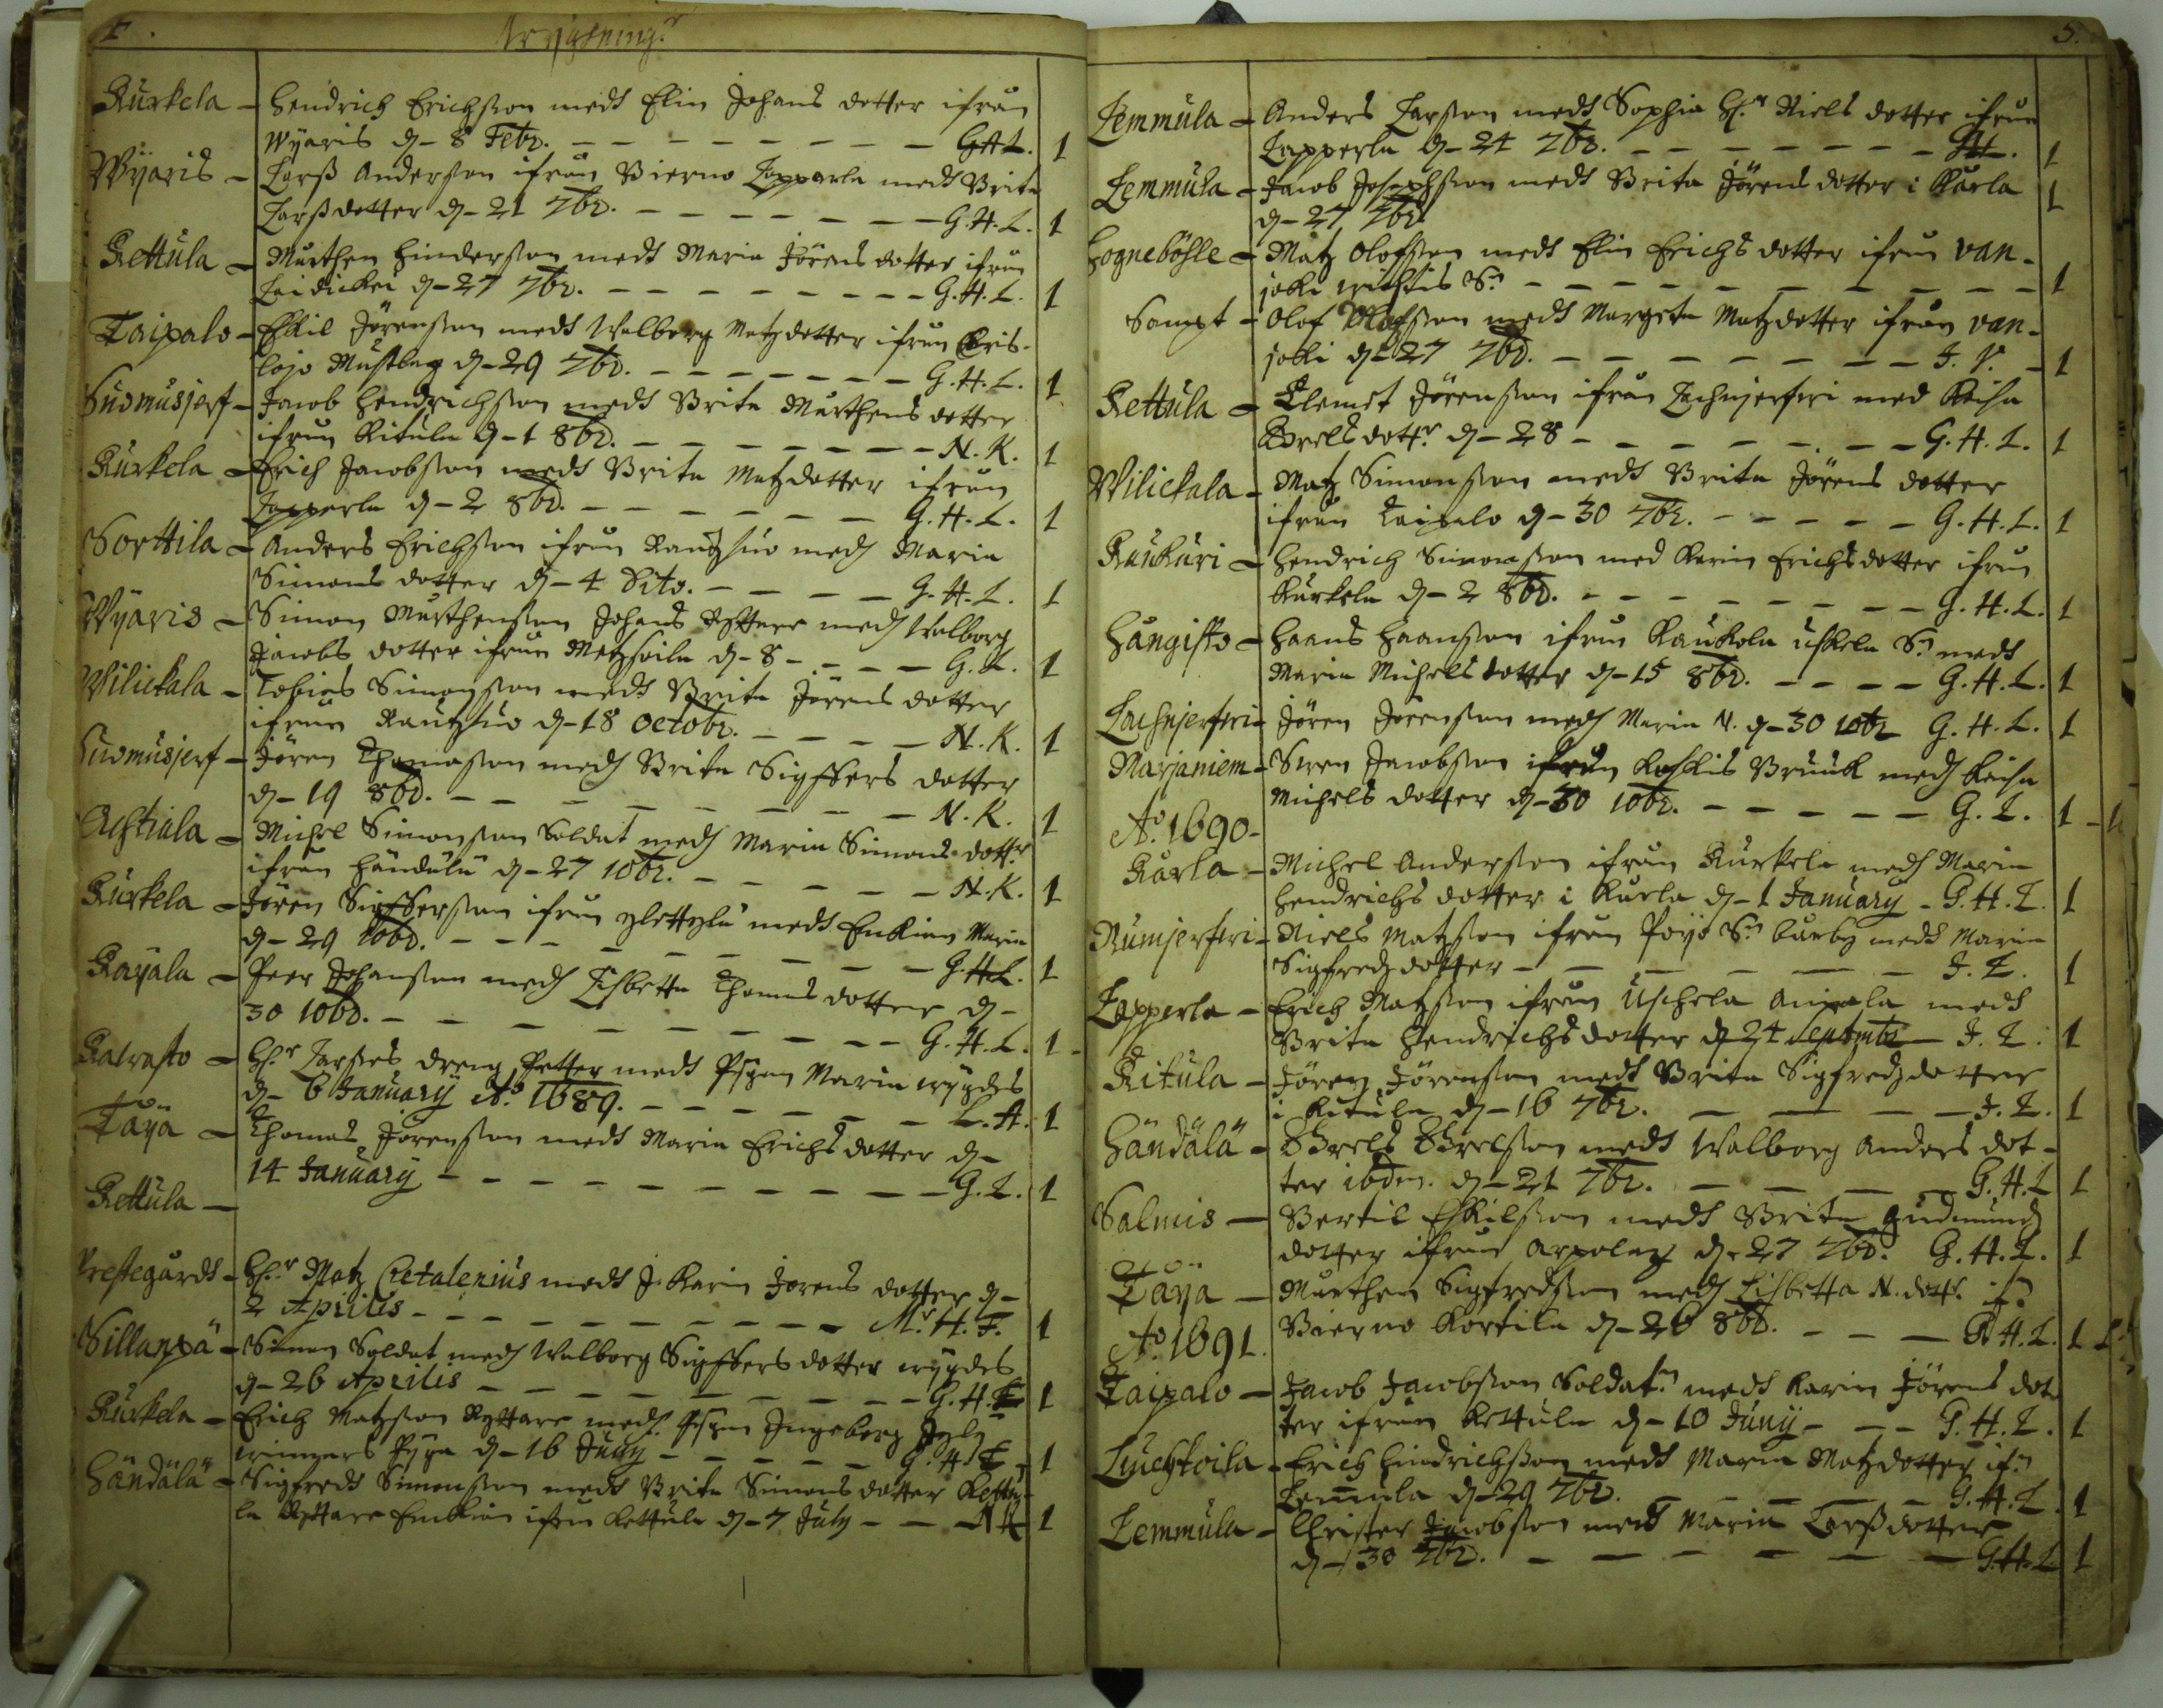 4.
Kurkela - Hendrich Erichsson medh Elin Johans dotter ifrån
Wÿaris d - 8 Febr. - G.H.L. 1
Wÿaris - Larss Andersson ifrån Bierno Lapparla medh Brita
Larssdotter d - 21 7br. - G.H.L. 1
Kettula - Marthen Hindersson medh Maria Jörens dotter ifrån
Laidickei d - 27 7br. - G.H.L. 1
Taipalo - Eskil Jörensson medh Walborg Matzdotter ifrån Caris-
lojo d - 29 7br. - G.H.L. 1
Suomusjerf - Jacob Hendrichsson medh Brita Marthens dotter
ifrån Kitula d - 1 8br. - N.K. 1
Kurkela - Erich Jacobsson medh Brita Matzdotter ifrån
Lapperla d - 2 8br. - G.H.L. 1
Sorttila - Anders Erichsson ifrån Rautzuo medh Maria
Simons dotter d - 4 dito. - G.H.L. 1
Wÿaris - Simon Marthensson Johans Ryttare medh Walborg
Jacobs dotter ifrån Metzkoila d - 8 - G.L. 1
Wilickala - Tobias Simonsson medh Brita Jörens dotter
ifrån Rautzuo d - 18 octobr. - N.K. 1
Suomusjerf - Jören Thomasson medh Brita Sigffers dotter
d - 19 8br. - N.K. 1
Achtiala - Michel Simonsson Soldat medh Maria Simons dottr
ifrån Händälä d - 27 10br. - N.K. 1
Kurkela - Jören Sigffersson ifrån ylettylä medh Enkian Maria
d - 29 10br. - G.H.L. 1
Kayala - Peer Johansson medh Lisbetta Thomas dotter d -
30 10br. - G.H.L. 1
Katrasto - Hr. Larses dreng Petter medh Pigan Maria wygdes
d - 6 January Ao. 1689. - L.A. 1
Täÿä - Thomas Jörensson medh Maria Erichs dotter d -
14 January - G.L. 1
Kettula -
Prestegårdh - Hr. Matz Cretalenius medh J. Karin Jörens dotter d -
2 Aprilis - Mr. H.F. 1
Sillanpä - Simon Soldat medh Walborg Sigffers dotter wygdes
d - 26 Aprilis - G.H.L 1
Kurkela - Erich Matzson Ryttare medh Pigan Ingeborg
Pyga d - 16 Junÿ - G.H.L 1
Händälä - Sigfredh Simonsson medh Brita Simons dotter Kettu-
la Ryttare Enkian ifrån Kettula d - 7 July - N K 1
5.
Lemmula - Anders Larsson medh Sophia Hr. Niels dotter ifrån
Lapperla d - 24 7br. - 1
Lemmula - Jacob Josephsson medh Brita Jörens dotter i Karla
d - 27 7br 1
Hogneböhle - Matz Olofsson medh Elin Erichs dotter ifrån Van-
joki wichtis Sn - 1
Sampt - Olof Olofsson medh Margeta Matzdotter ifrån Van-
joki d - 27 7br. - J.P. - 1
Kettula - Clemet Jörensson ifrån Lachnjerfwi med Kaisa
Brelsdottr. d - 28 - G.H.L. 1
Wilickala - Matz Simonsson medh Brita Jörens dotter
ifrån Taipalo d - 30 7br. - G.H.L. 1
Kaukuri - Hendrich Simonsson med Karin Erichsdotter ifrån
Kurkela d - 2 8br. - G.H.L. 1
Hångisto - Haans Haansson ifrån Kaukola uskela Sn. medh
Maria Michelsdotter d - 15 8br. - G.H.L. 1
Lachnjerfwi - Jören Jörensson medh Maria N. d - 30 10br G.H.L. 1
Marjaniem - Swen Jacobsson ifrån Koskis Bruuk medh Kaisa
Michels dotter d - 30 10br. - G.L. 1
Ao. 1690 -
Karla - Michel Andersson ifrån Kurkela medh Maria
Hendrichs dotter i Karla d - 1 January - G.H.L. 1
Rumjerfwi - Niels Matzson ifrån Poÿo Sn Backby medh Maria
Sigfredzdotter - J.L. 1
Lapperla - Erich Matzson ifrån Uschela Anixala medh
Brita Hendrichsdotter d 24 Septmbr - J.L. 1
Kitula - Jören Jörensson medh Brita Sigfredzdotter
i Kitula d - 16 7br. - J.L. 1
Händälä - Brels Brelsson medh Walborg Anders dot-
ter ibdm. d - 21 7br. - G.H.L 1
Salmis - Bertil Eskilsson medh Brita Gudmundz
dotter ifrån Arpolag d - 27 7br. G.H.L. 1
Täÿä - Marthen Sigfredsson medh Lisbetta N. dottr. if:
Bierno Kortila d - 26 8br. - G H.L. 1
Ao. 1691.
Taipalo - Jacob Jacobsson Soldatn medh Karin Jörens dot
ter ifrån Kettula d - 10 Junÿ - G.H.L. 1
Luechtoila - Erich Hindrichsson medh Maria Matzdotter ifn
Lemula d - 29 7br. - G.H.L. 1
Lemmula - Christer Jacobsson medh Maria Larssdotter
d - 30 7br. - G.H.L 1